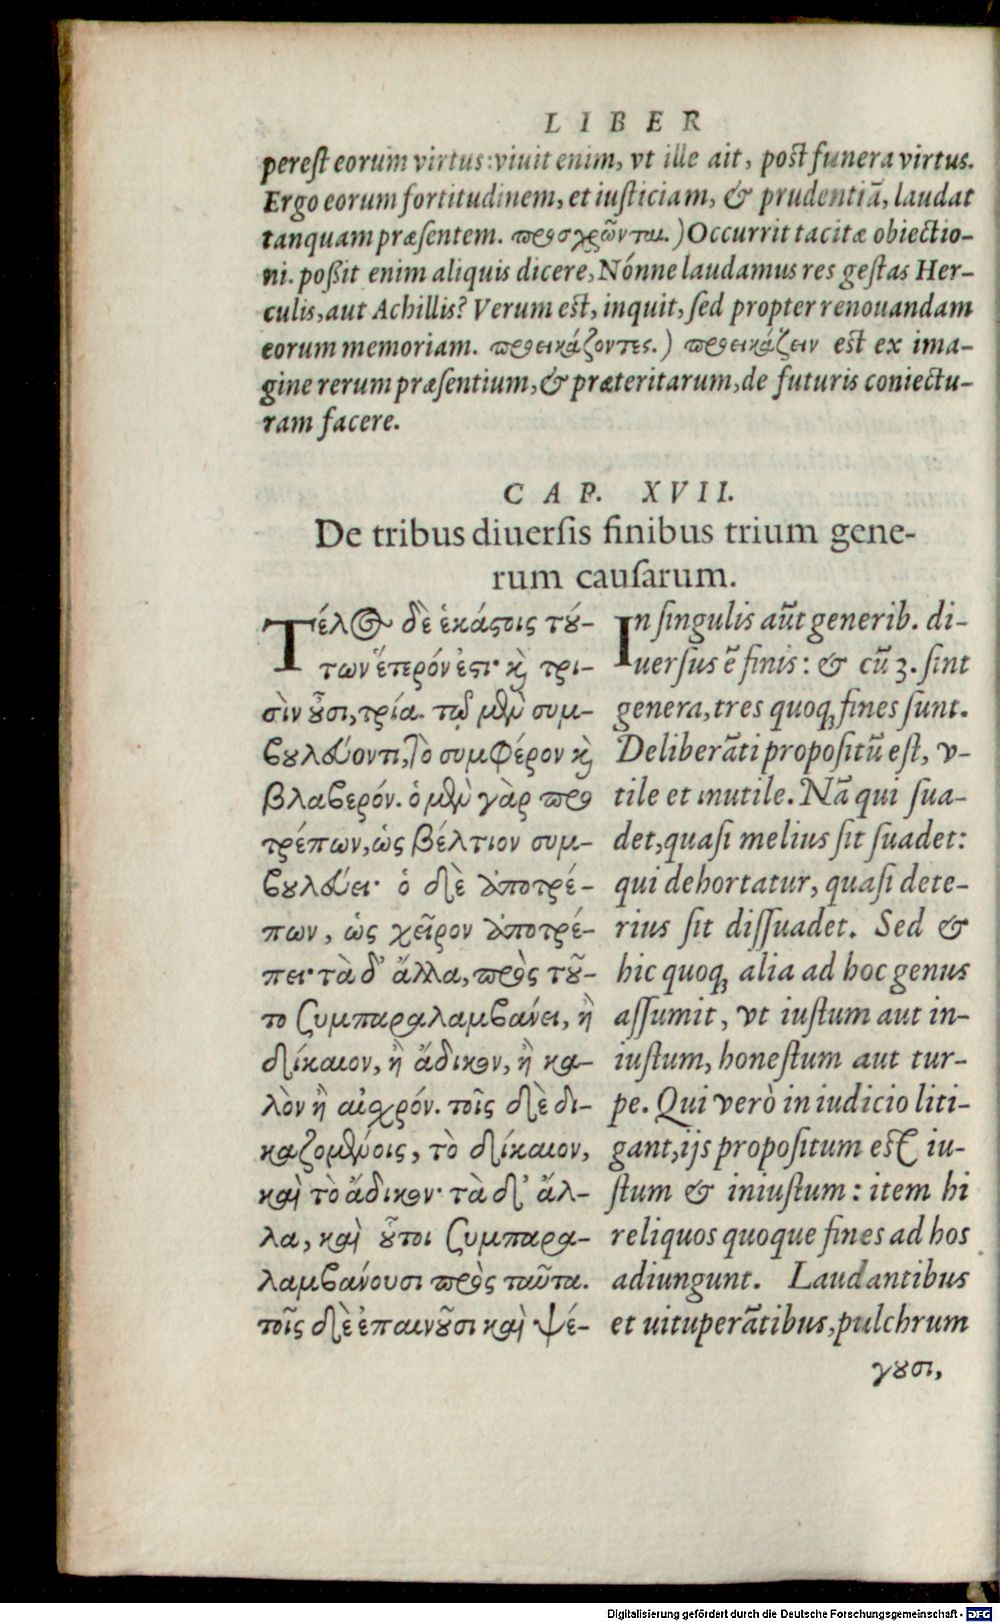 LIBER
perest eorum virtus: viuit enim, vt ille ait, post funera virtus.
Ergo eorum fortitudinem, et iusticiam, & prudentiã, laudat
tanquam præsentem. προσχρῶνται.) Occurrit tacitæ obiectio-
ni. poßit enim aliquis dicere, Nónne laudamus res gestas Her-
culis, aut Achillis? Verum est, inquit, sed propter renouandam
eorum memoriam. προεικάζοντες.) προεικάζειν est ex ima-
gine rerum præsentium, & præteritarum, de futuris coniectu-
ram facere.
CAP. XVII.
De tribus diuersis finibus trium gene-
rum causarum.
Τέλος δὲ ἑκάστοις τού-
των ἕτερόν ἐστι· καὶ τρι-
σὶν οὖσι, τρία. τῷ μὲν συμ-
βουλεύοντι, τὸ συμφέρον καὶ
βλαβερόν. ὁ μὲν γὰρ προ
τρέπων, ὡς βέλτιον συμ-
βουλεύει· ὁ δὲ ἀποτρέ-
πων, ὡς χεῖρον ἀποτρέ-
πει· τὰ δ' ἄλλα, πρὸς τοῦ-
το συμπαραλαμβάνει, ἢ
δίκαιον, ἢ ἄδικον, ἢ κα-
λὸν ἢ αἰσχρόν. τοῖς δὲ δι-
καζομένοις, τὸ δίκαιον,
καὶ τὸ ἄδικον· τὰ δ' ἄλ-
λα, καὶ οὗτοι συμπαρα-
λαμβάνουσι πρὸς ταῦτα.
τοῖς δὲ ἐπαινοῦσι καὶ ψέ-
In singulis aũt generib. di-
uersus ẽ finis: & cũ 3. sint
genera, tres quoq; fines sunt.
Deliberãti propositũ est, v-
tile et inutile. Nã qui sua-
det, quasi melius sit suadet:
qui dehortatur, quasi dete-
rius sit dissuadet. Sed &
hic quoq; alia ad hoc genus
assumit, vt iustum aut in-
iustum, honestum aut tur-
pe. Qui verò in iudicio liti-
gant, ijs propositum est iu-
stum & iniustum: item hi
reliquos quoque fines ad hos
adiungunt. Laudantibus
et uituperãtibus, pulchrum
γουσι,
Digitalisierung gefördert durch die Deutsche Forschungsgemeinschaft - DFG